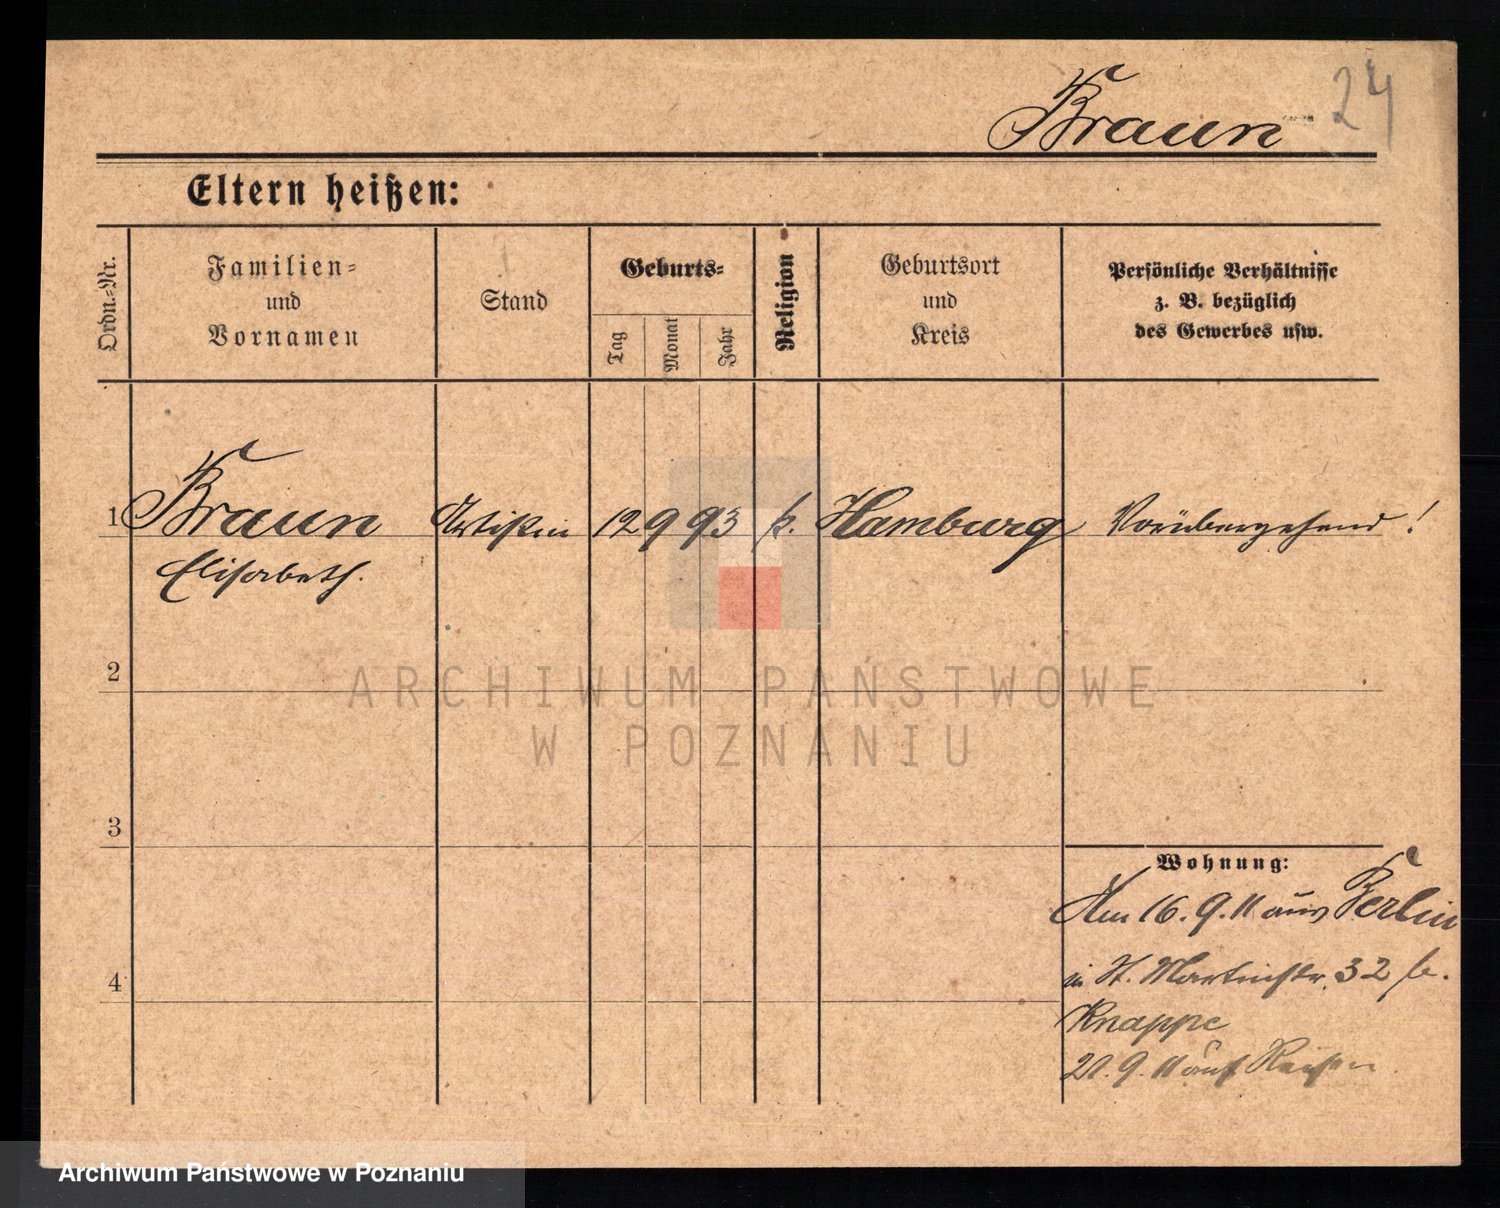 Braun 24
Eltern heißen:
Ordn.-Nr.
Familien-
und
Vornamen
Stand
Geburts-
Tag
Monat
Jahr
Religion
Geburtsort
und
Kreis
Persönliche Verhältnisse
z. B. bezüglich
des Gewerbes usw.
1 Braun Artistin 12 9 93 k. Hamburg Vorübergehend!
Elisabeth.
2
ARCHIWUM PAŃSTWOWE
W POZNANIU
3
Wohnung:
Am 16.9.11 aus Berlin
4
in St. Martinstr. 32 b.
Knappe
21.9.11 auf Reisen
Archiwum Państwowe w Poznaniu